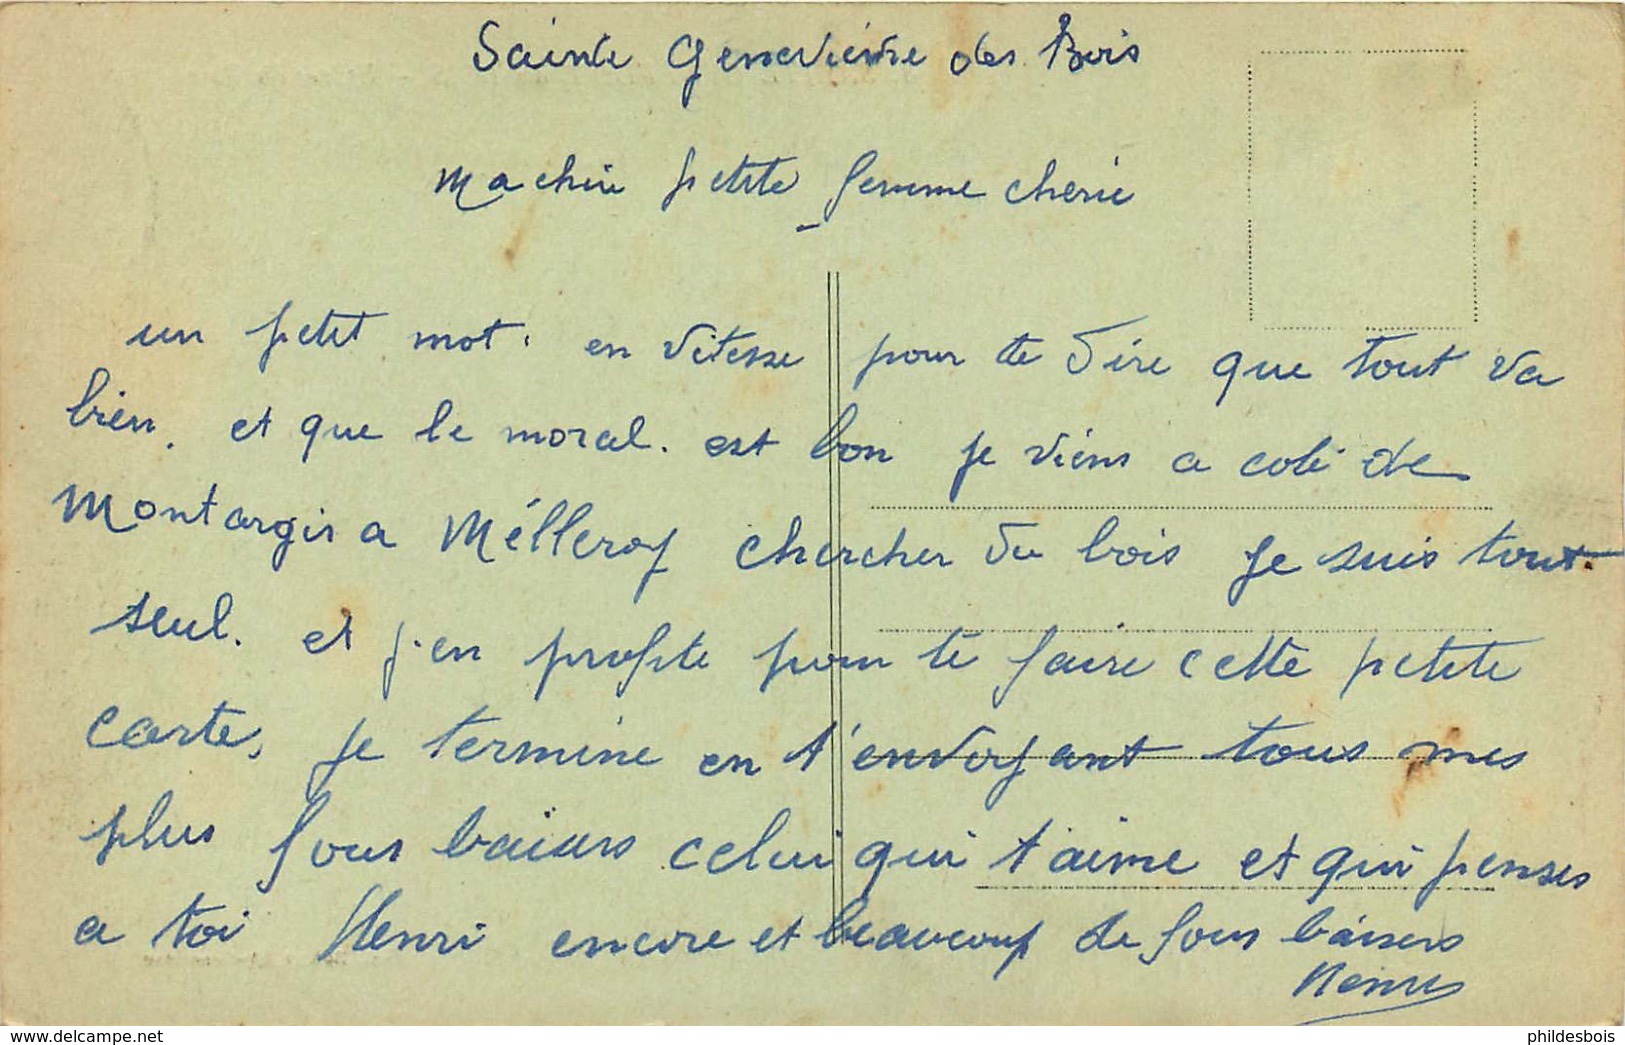 Sainte Geneviève des Bois
Ma chérie petite femme chérie
un petit mot. en vitesse pour te dire que tout va
bien. et que le moral. est bon je viens a coté de
Montargis a Mélleroy chercher du bois je suis tout
seul. et j'en profite pour te faire cette petite
carte, je termine en t'envoyant tous mes
plus fous baisers celui qui t'aime et qui penses
a toi Henri encore et beaucoup de fous baisers
Henri
www.delcampe.net
phildesbois